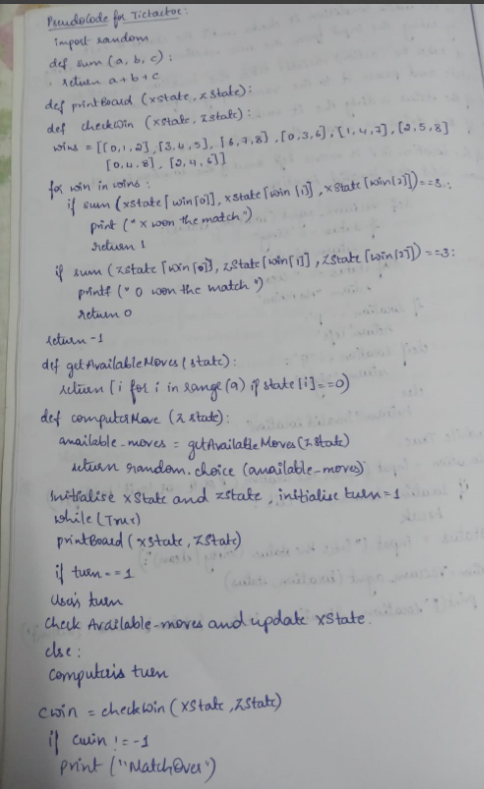 Pseudocode for Tictactoe:
import random
def sum (a, b, c):
return a+b+c
def printBoard (xState, zState):
def checkWin (xState, zState):
wins = [[0,1,2], [3,4,5], [6,7,8], [0,3,6], [1,4,7], [2,5,8]
[0,4,8], [2,4,6]]
for win in wins:
if sum (xState[win[0]], xState[win[1]], xState[win[2]])==3:
print ("X won the match")
return 1
if sum (zState[win[0]], zState[win[1]], zState[win[2]])==3:
printf ("O won the match")
return 0
return -1
def getAvailableMoves (state):
return [i for i in range(9) if state[i]==0)
def computerMove (zState):
available-moves = getAvailableMoves(zState)
return random.choice (available-moves)
Initialise xState and zState, initialise turn=1
while(True)
printBoard (xState, zState)
if turn==1
User's turn
Check Available-moves and update xState.
else:
Computer's turn
cwin = checkWin (xState, zState)
if cwin != -1
print ("MatchOver")